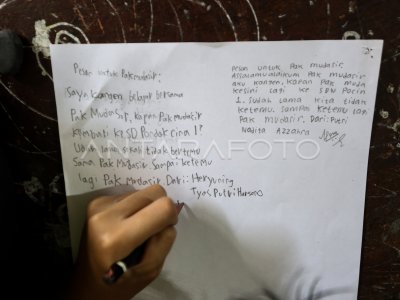 Pesan untuk Pak mudasir:
Saya kangen belajar bersama
Pak Mudasir, kapan Pak mudasir
kembali ke SD Pondok cina 1?
Udah lama sekali tidak bertemu
Sama Pak Mudasir. Sampai ketemu
lagi Pak Mudasir Dari: Heryuning
Tyas Putri
Pesan untuk Pak mudasir
Assalamualaikum Pak mudasir
aku kangen, kapan Pak muda
kesini lagi ke SDN Pocin
1. Sudah lama kita tidak
ketemu. Sampai ketemu lagi
Pak mudasir. Dari: Putri
Nadifa Azzahra
ANTARAFOTO